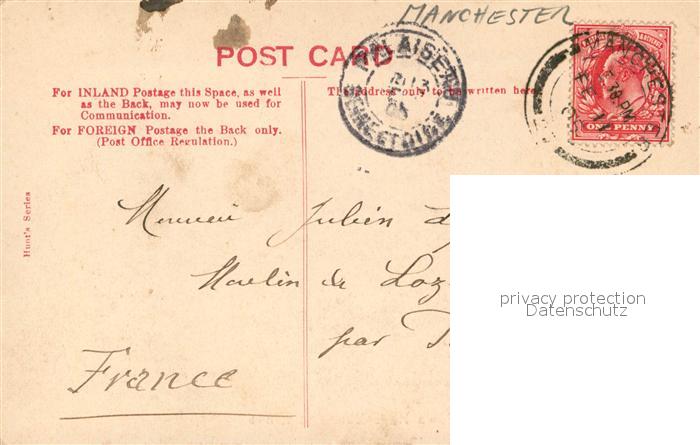 MANCHESTER
POST CARD
For INLAND Postage this Space, as well
as the Back, may now be used for
Communication.
For FOREIGN Postage the Back only.
(Post Office Regulation.)
The Address only to be written here.
ONE PENNY
MANCHESTER
Hunt's Series
Julien
Moulin de
par
France
privacy protection
Datenschutz